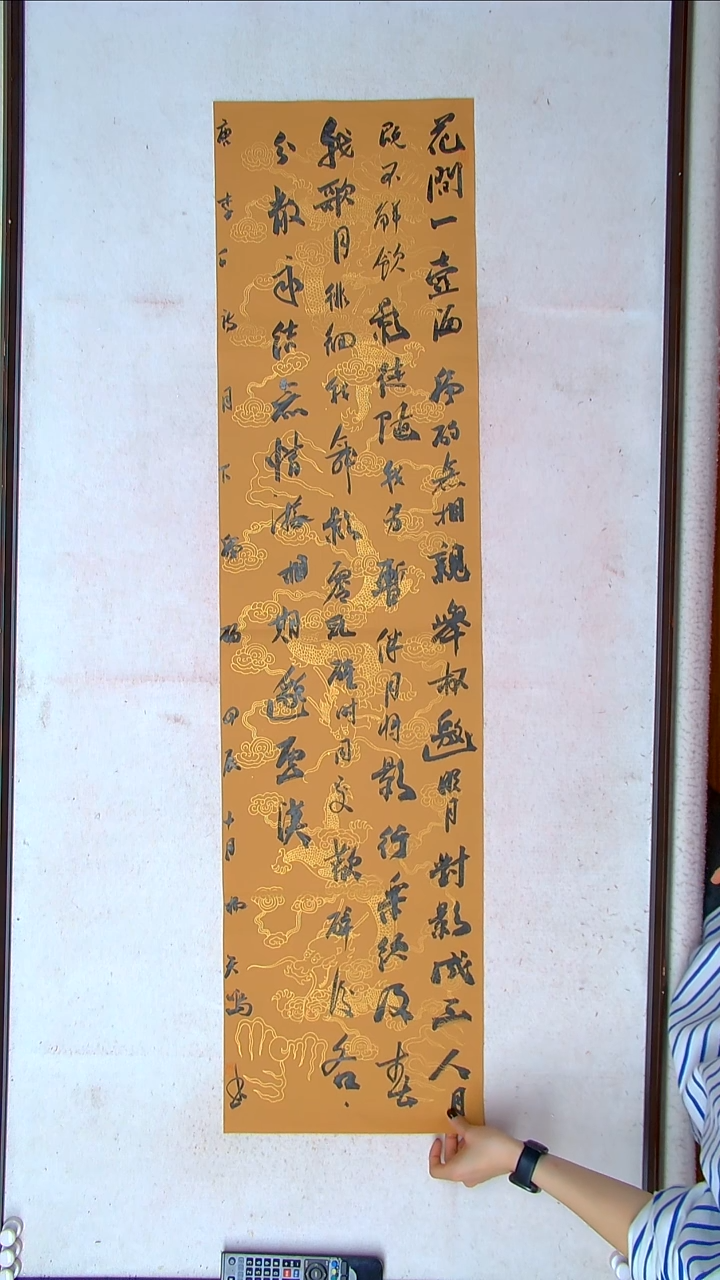 花間一壺酒獨酌無相親舉杯邀明月對影成三人月
既不解飲影徒隨我身暫伴月將影行樂須及春
我歌月徘徊我舞影零亂醒時同交歡醉後各、
分散永結無情遊相期邈雲漢
唐李白詩月下獨酌甲辰十月天書